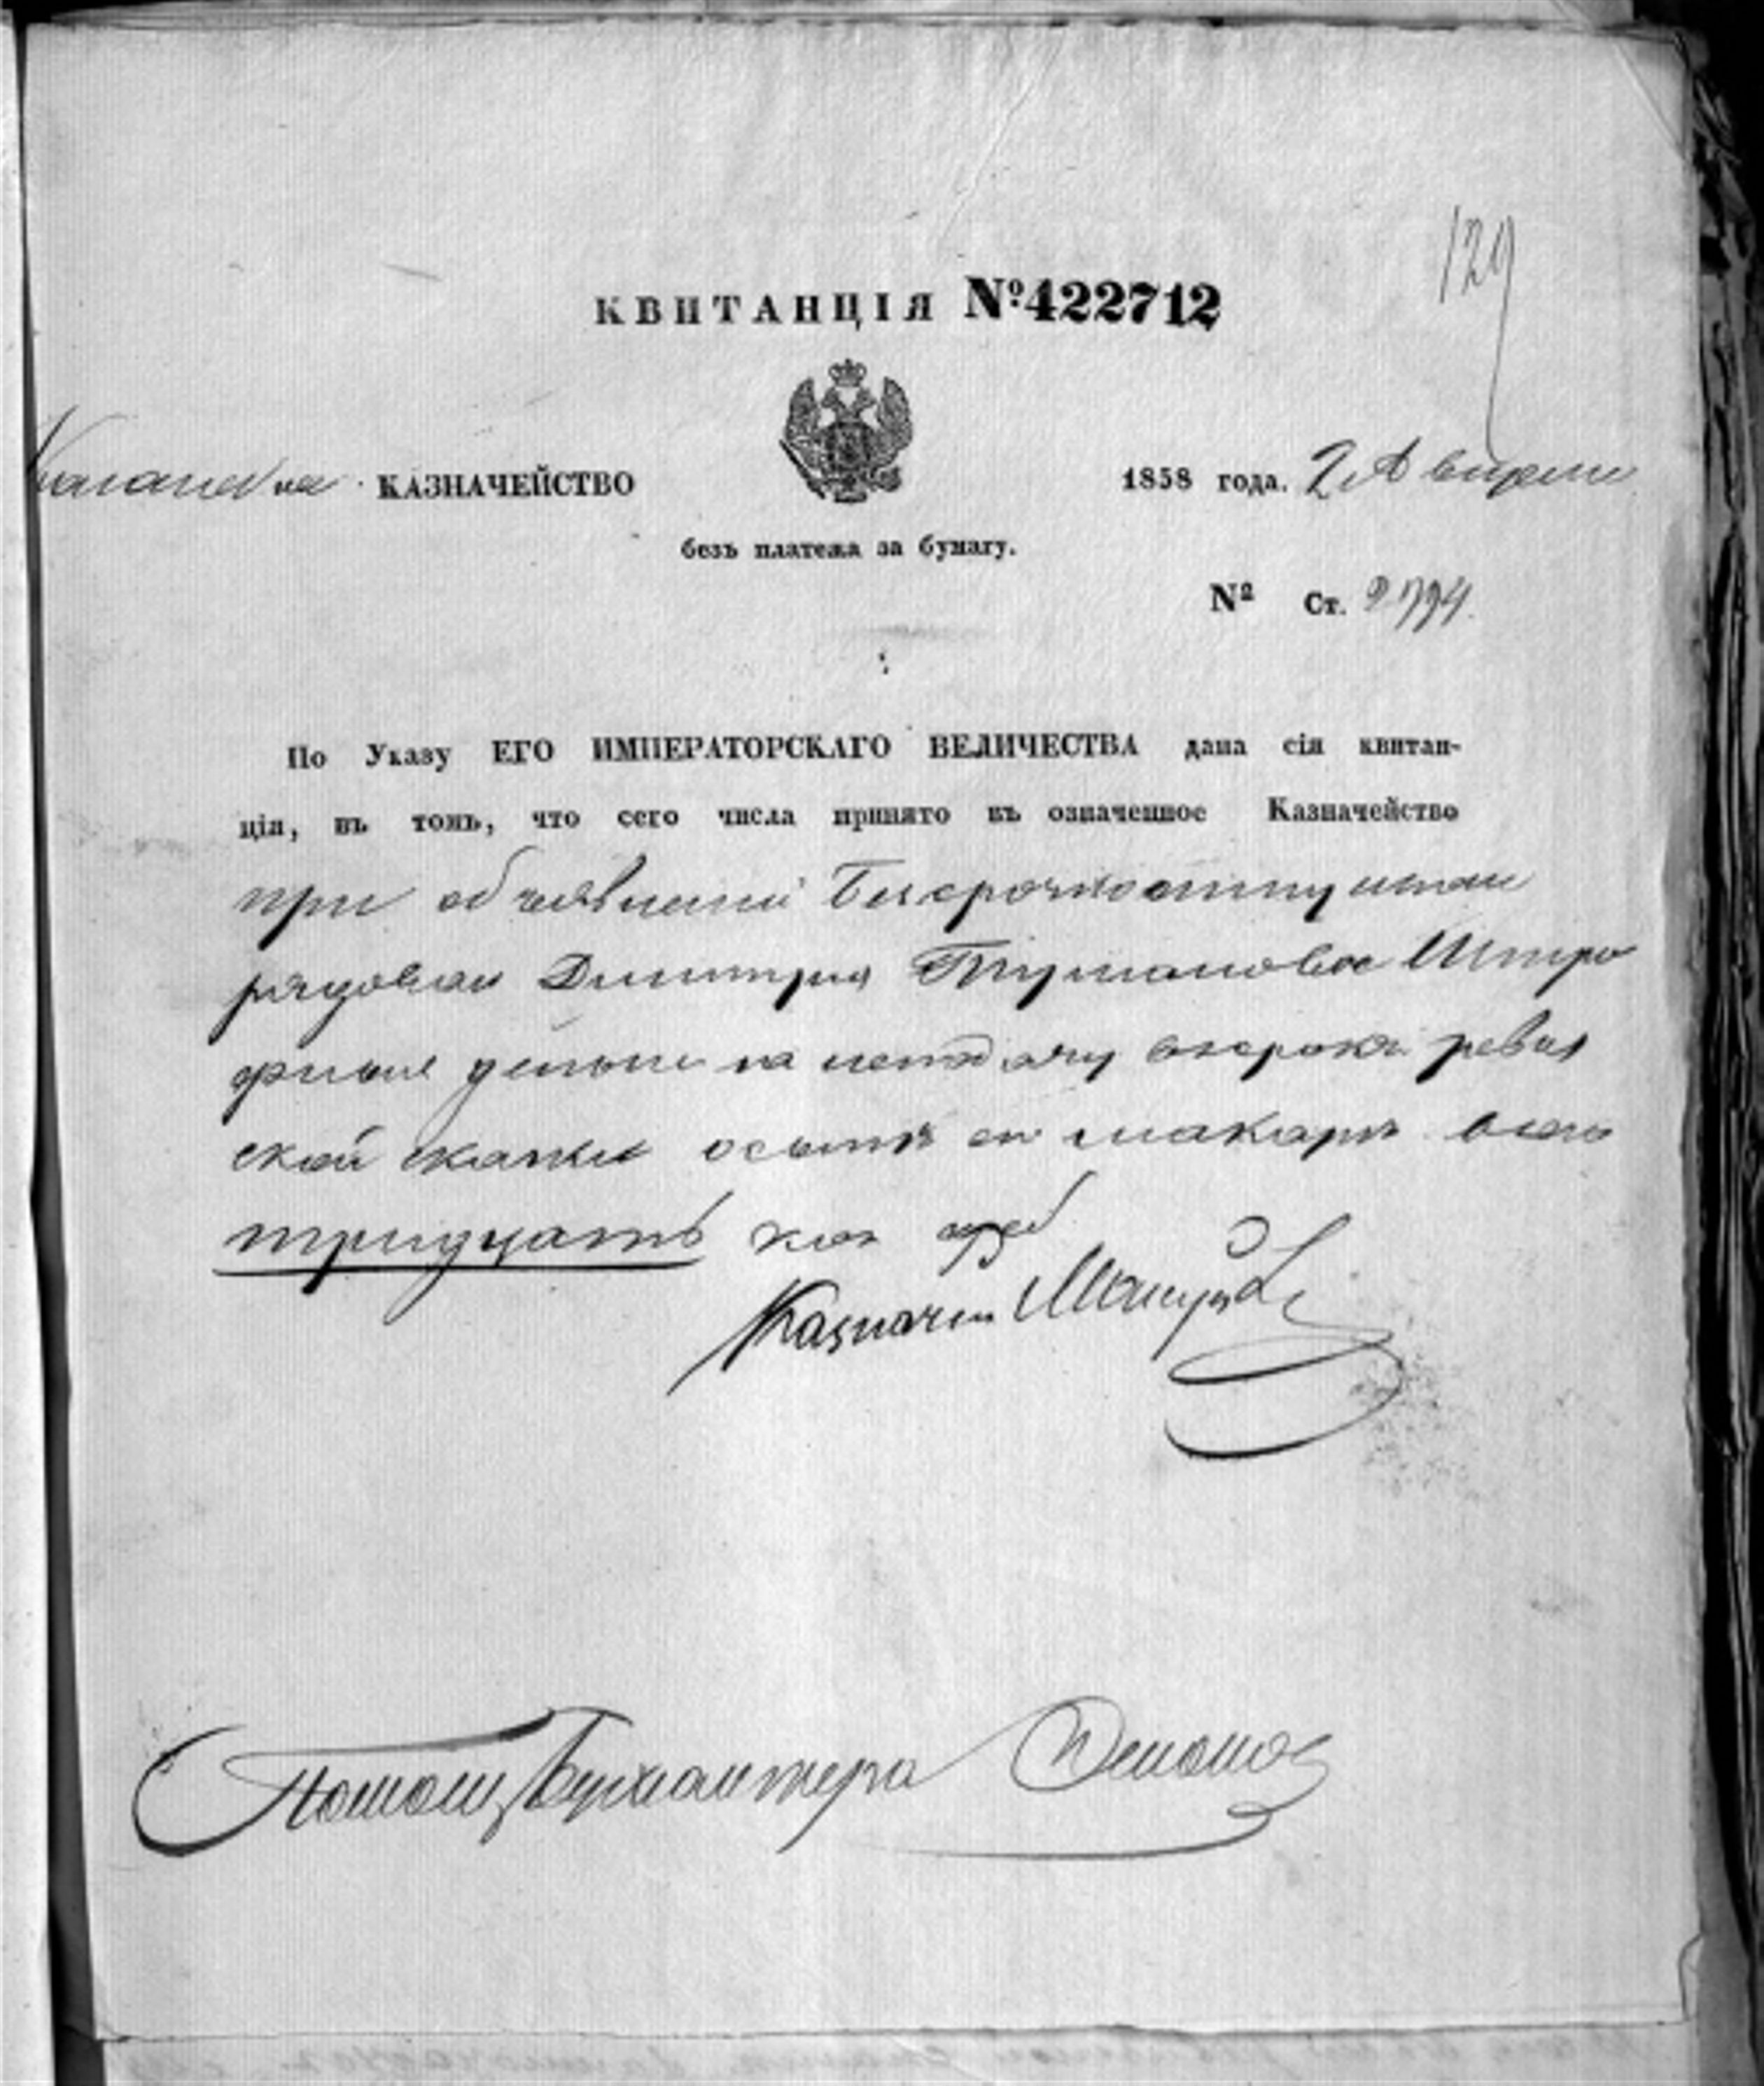 129
КВИТАНЦІЯ №422712
КАЗНАЧЕЙСТВО
1858 года. 2 Апреля
безъ платежа за бумагу.
№ Ст. 2794.
По Указу ЕГО ИМПЕРАТОРСКАГО ВЕЛИЧЕСТВА дана сія квитан-
ція, въ томъ, что сего числа принято въ означенное Казначейство
при объявленіи Безсрочноотпускнаго
рядоваго Дмитрія Штра
фныя деньги за неподачу въ срокъ ревиз
ской сказки о сынѣ его Макарѣ всего
тридцать коп сереб
Казначей
Помощ Бухгалтера